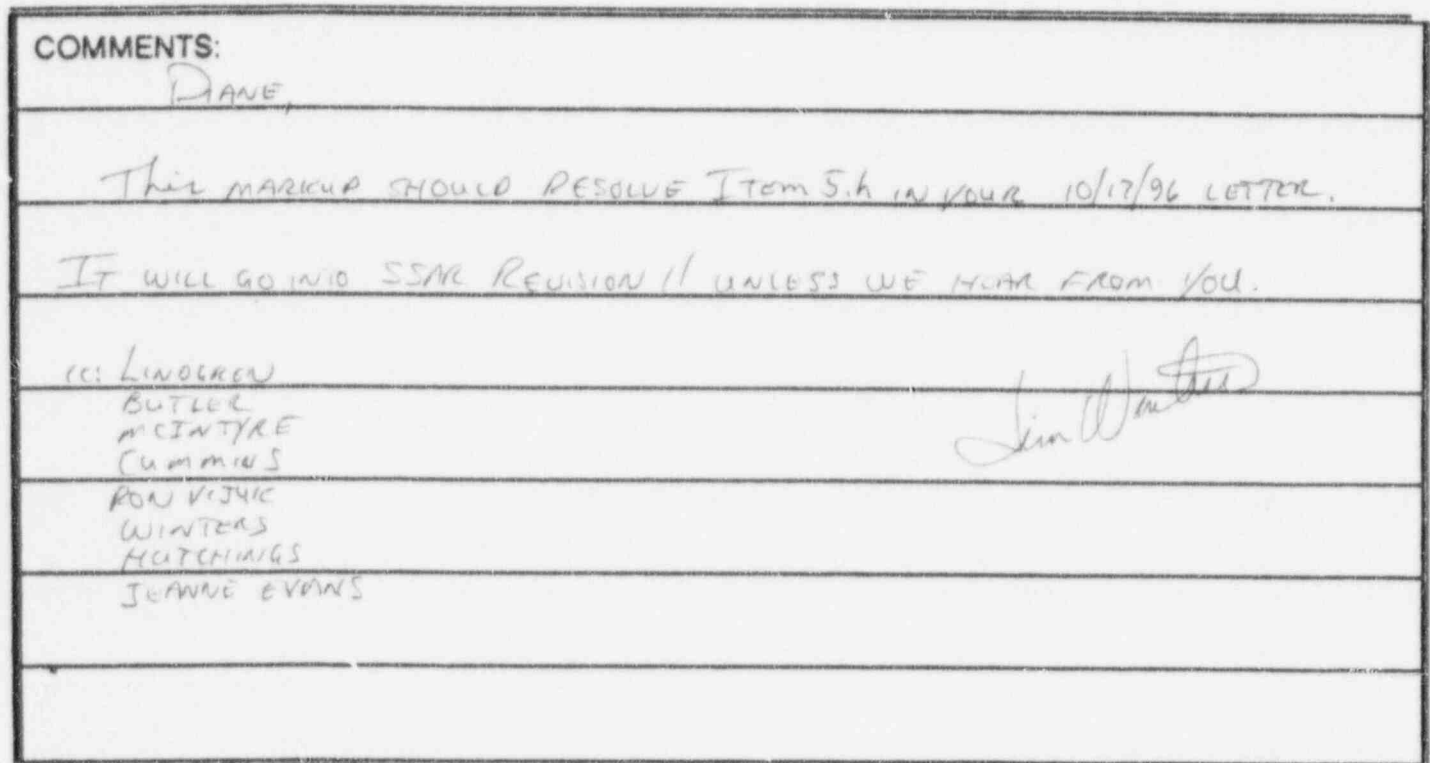 COMMENTS:
DIANE,
This MARKUP SHOULD RESOLVE ITEM 5.h IN YOUR 10/17/96 LETTER.
IT WILL GO INTO SSAR REVISION 11 UNLESS WE HEAR FROM YOU.
cc: LINDGREN
BUTLER
MCINTYRE
CUMMINS
RON VIJUK
WINTERS
HUTCHINGS
JEANNE EVANS
Jim Winters